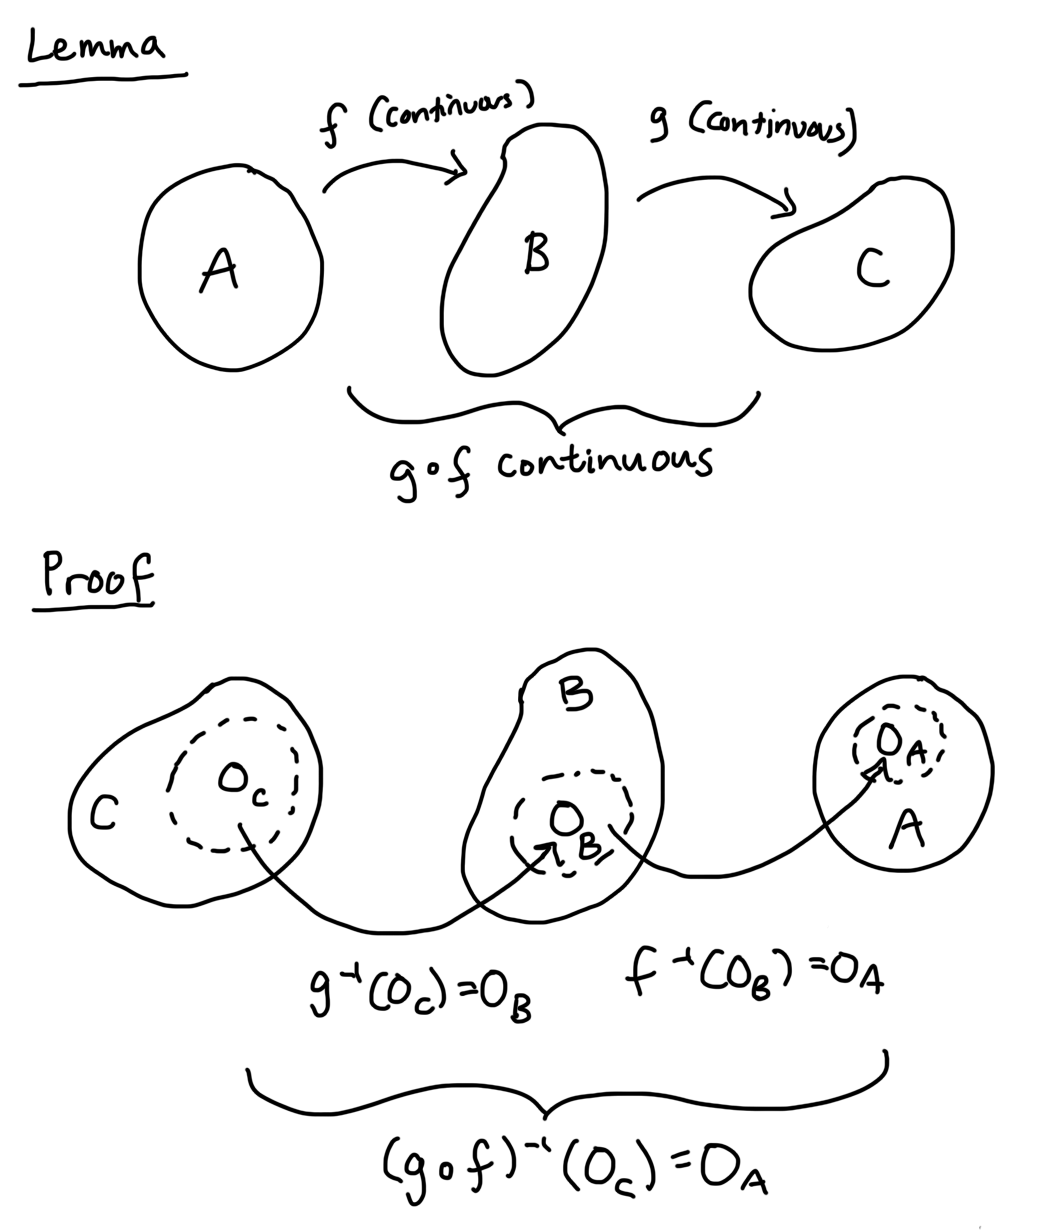 Lemma
f (continuous) g (continuous)
A B C
g∘f continuous
Proof
C O_C B O_B O_A A
g⁻¹(O_C)=O_B f⁻¹(O_B)=O_A
(g∘f)⁻¹(O_C)=O_A